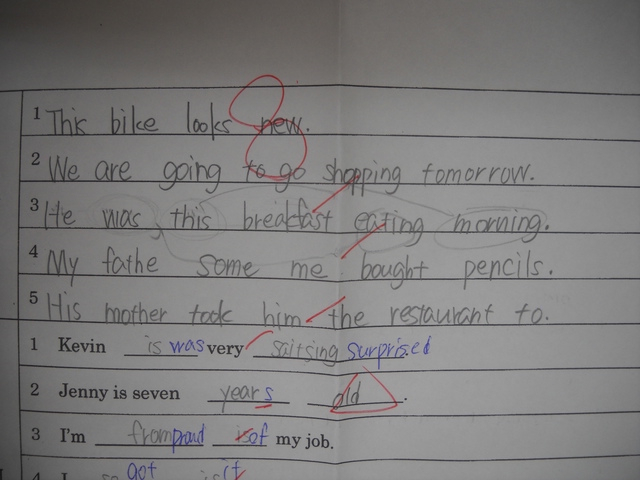 1 This bike looks new.
2 We are going to go shopping tomorrow.
3 He was, this breakfast eating morning.
4 My fathe some me bought pencils.
5 His mother took him the restaurant to.
1 Kevin is was very saitsing surprised
2 Jenny is seven years old.
3 I'm from proud of my job.
4 I so got is it